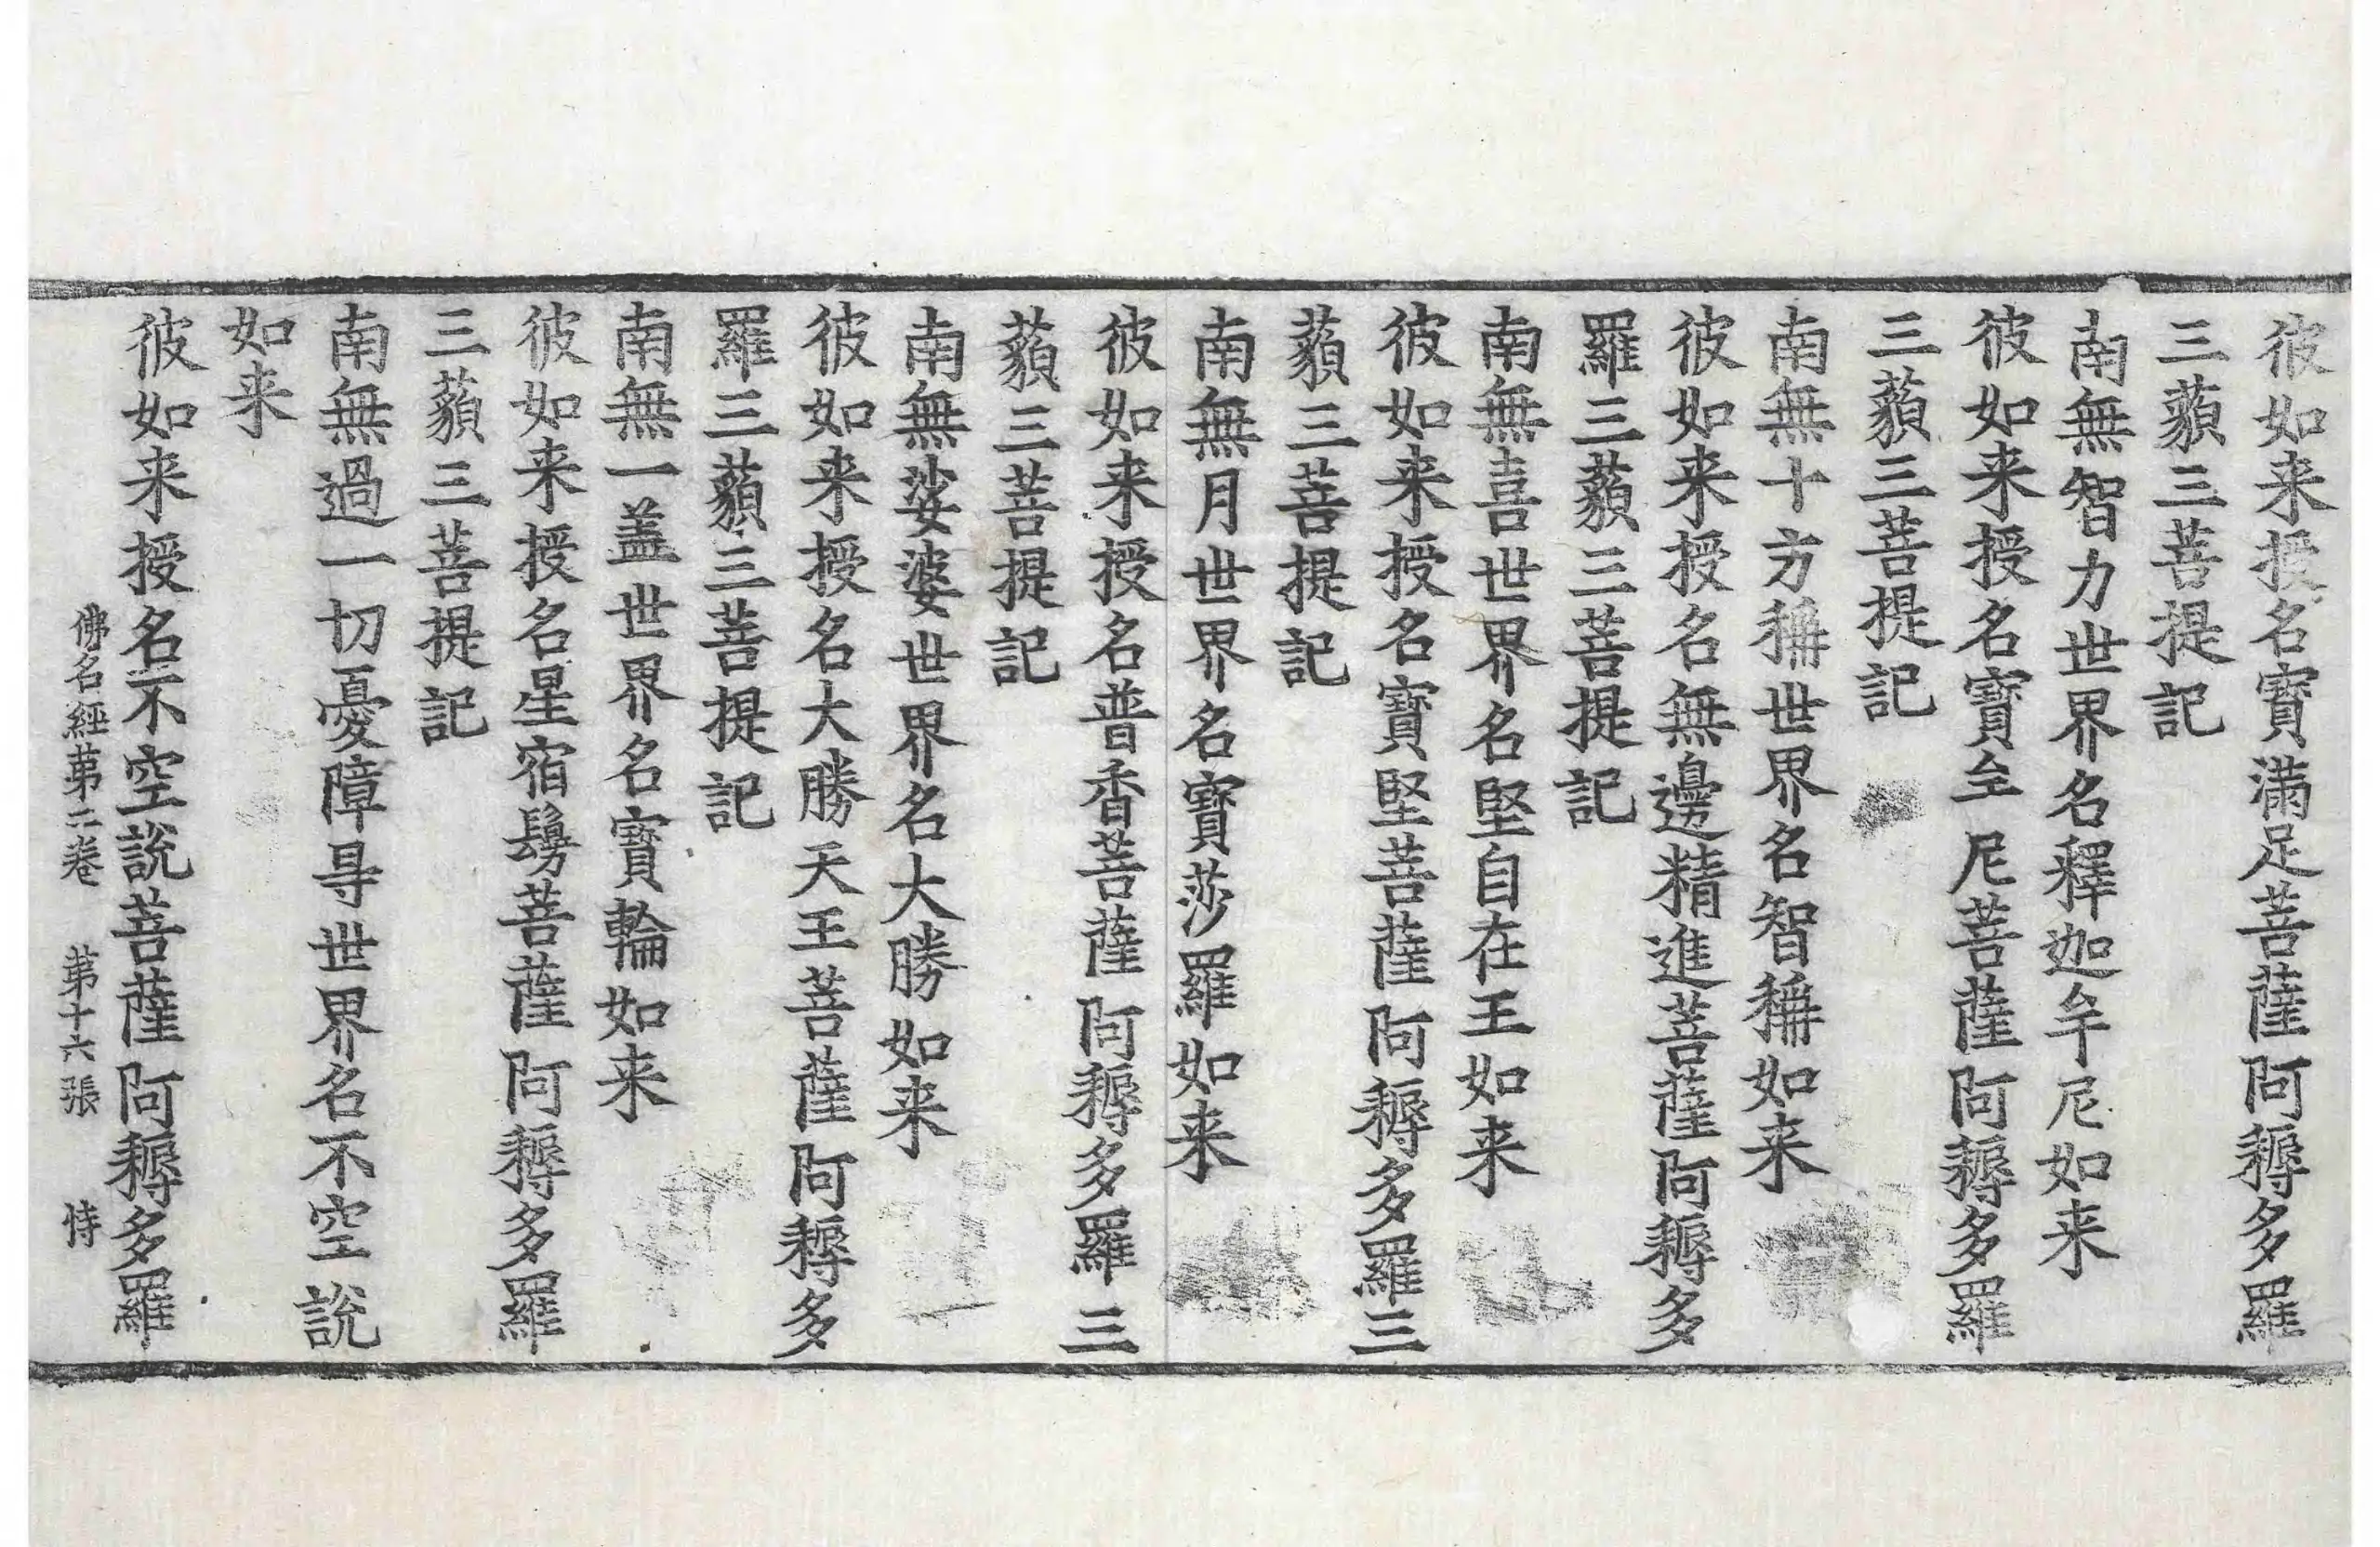 彼如来授名寶滿足菩薩阿耨多羅
三藐三菩提記
南無智力世界名釋迦牟尼如来
彼如来授名寶牟尼菩薩阿耨多羅
三藐三菩提記
南無十方稱世界名智稱如来
彼如来授名無邊精進菩薩阿耨多
羅三藐三菩提記
南無喜世界名堅自在王如来
彼如来授名寶堅菩薩阿耨多羅三
藐三菩提記
南無月世界名寶莎羅如来
彼如来授名普香菩薩阿耨多羅三
藐三菩提記
南無娑婆世界名大勝如来
彼如来授名大勝天王菩薩阿耨多
羅三藐三菩提記
南無一盖世界名寶輪如来
彼如来授名星宿鬘菩薩阿耨多羅
三藐三菩提記
南無過一切憂障㝵世界名不空說
如来
彼如来授名不空說菩薩阿耨多羅
佛名經第二卷　第十六張　恃